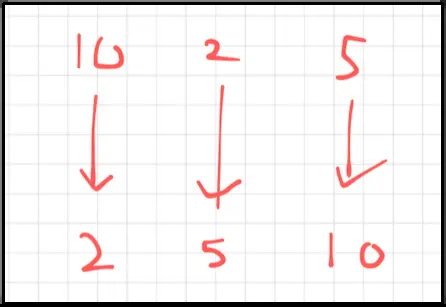 10 2 5
2 5 10